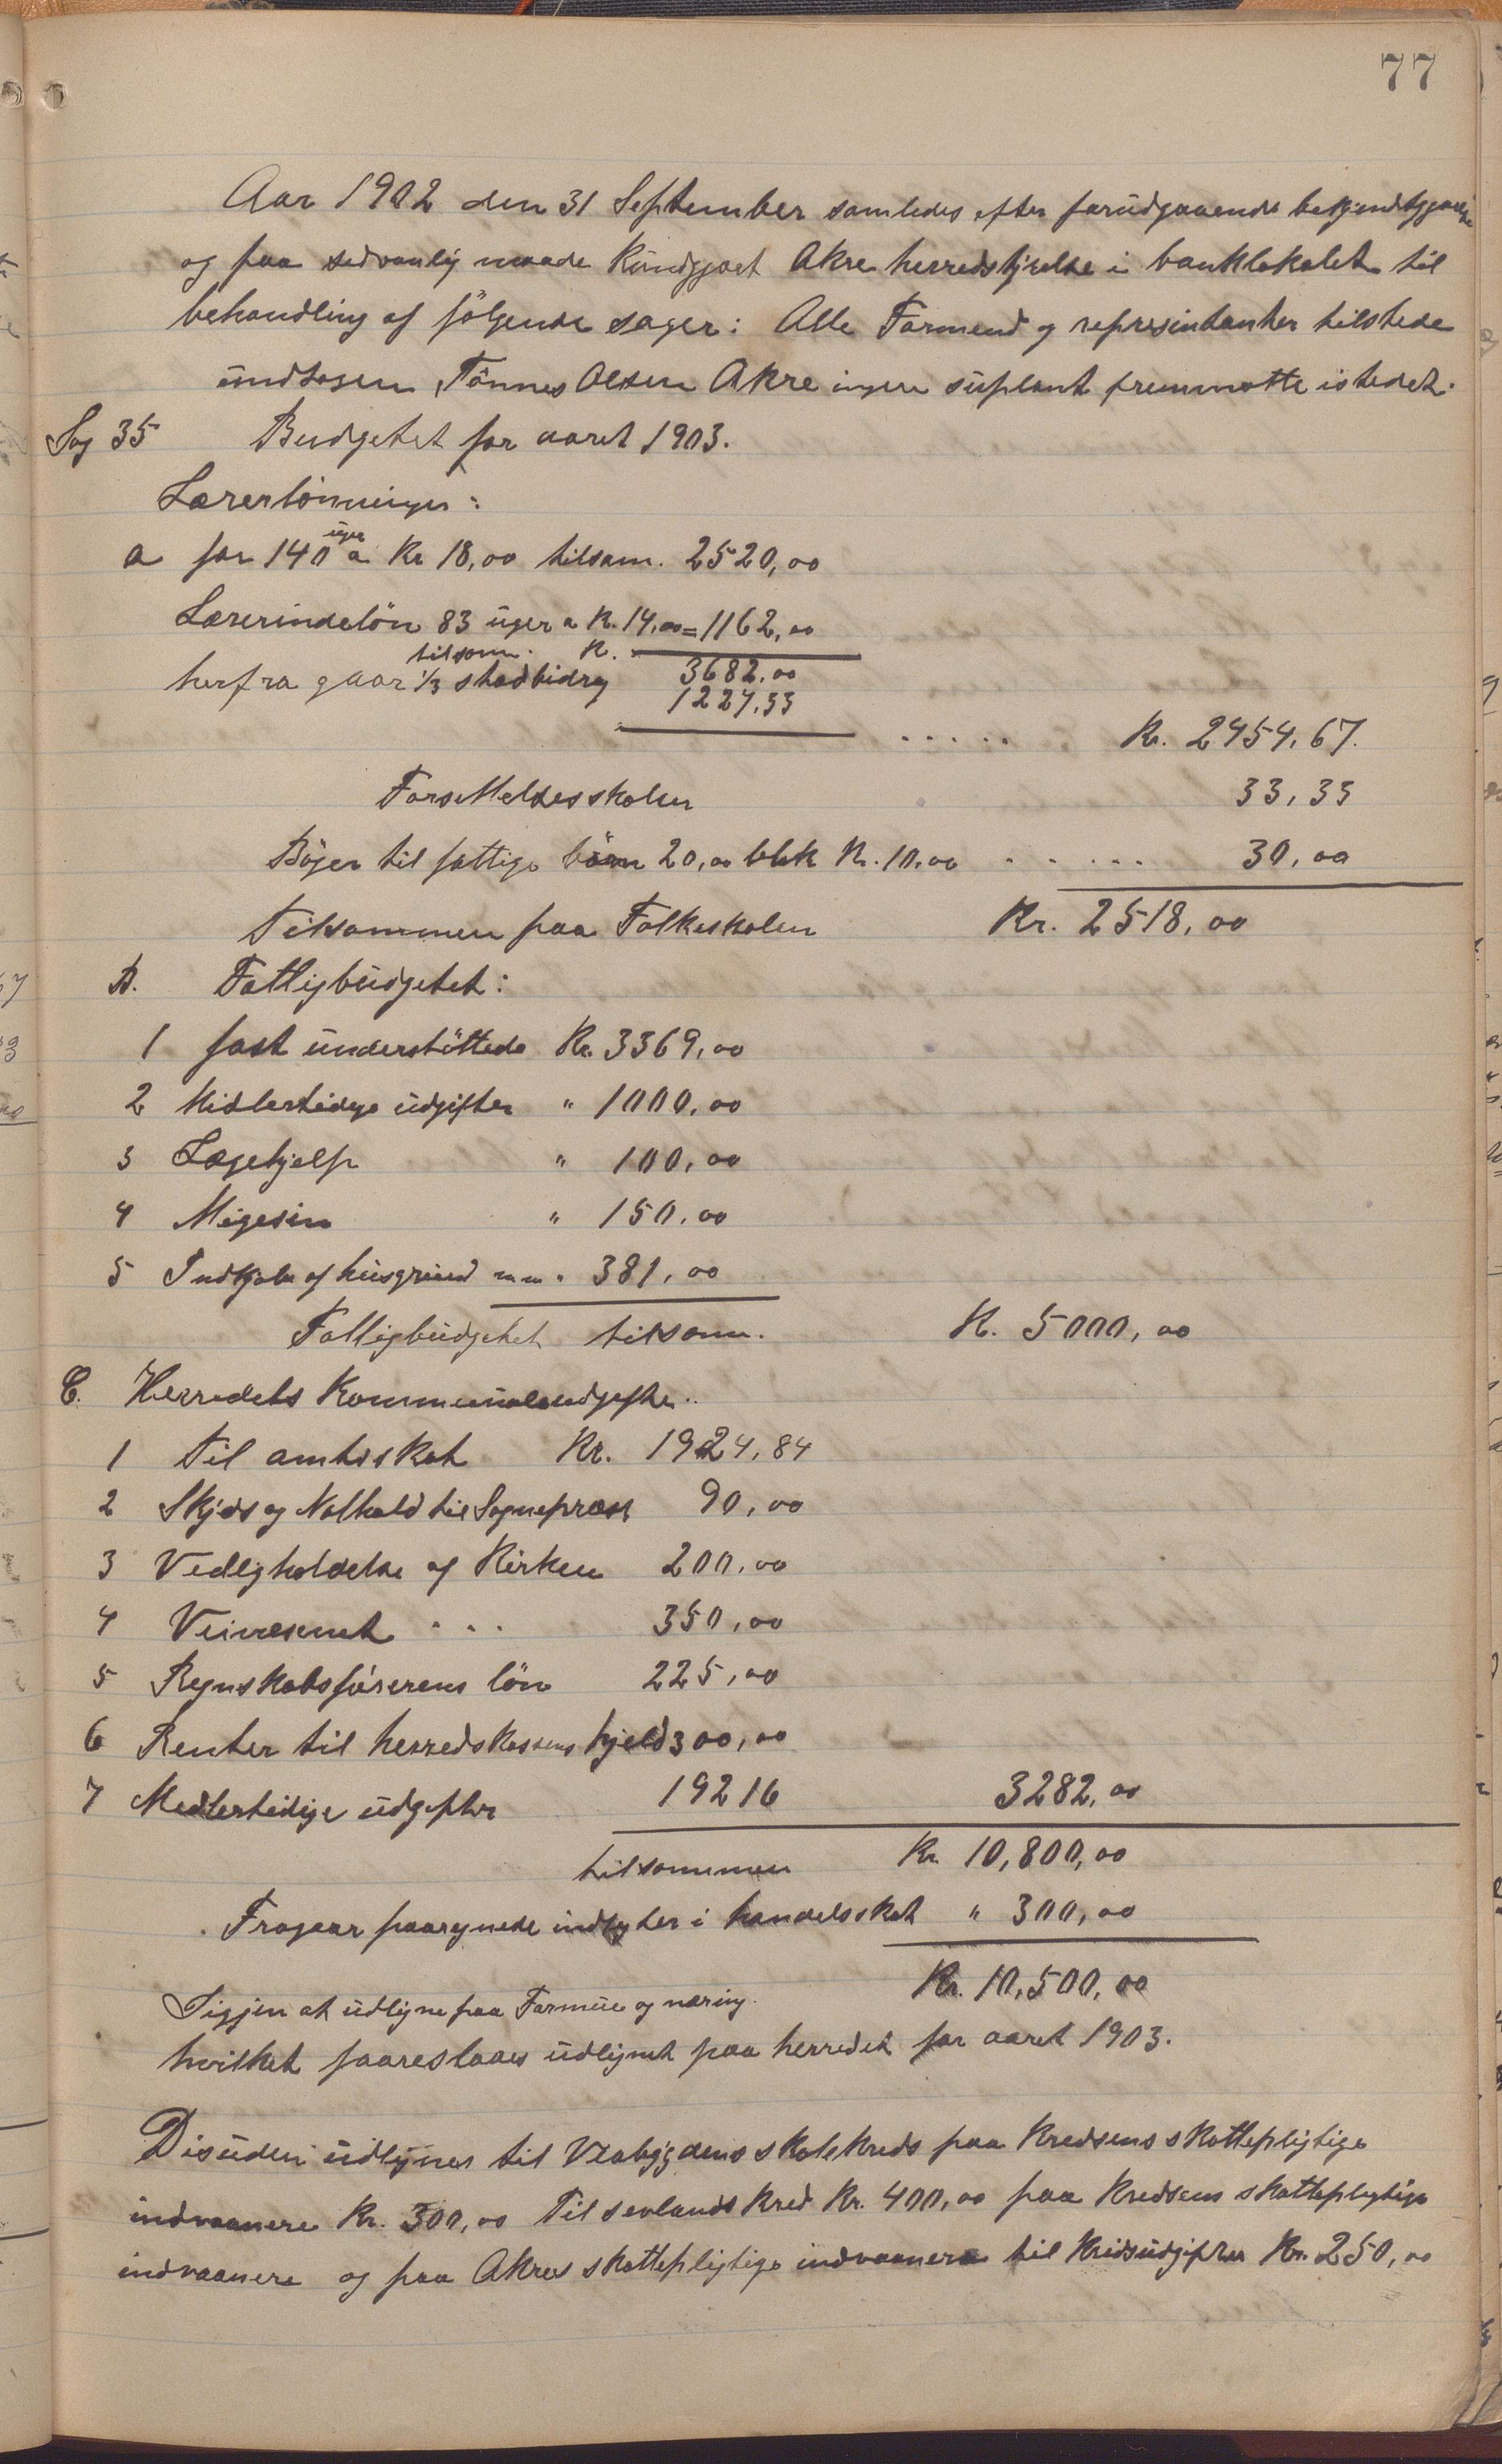 77
Aar 1902 den 31 September samledes efter forudgaaende bekjendtgjørelse
og paa sedvanlig maade kundgjort Akre herredstyrelse i banklokalet til
behandling af følgende sager: Alle Formend og represintanter tilstede
undtagen Tönnes Olsen Akre ingen suplant fremmøtte istedet.
Sag 35 Budgetet for aaret 1903.
Lærerlönninger:
a for 140 uger a Kr 18,00 tilsam. 2520,00
Lærerindelön 83 uger a Kr. 14,00 = 1162,00
tilsam. Kr. 3682,00
herfra gaar 1/3 stadbidrag 1227,33
..... Kr. 2454,67.
Forsettelsesskolen 33,33
Böger til fattige börn 20,00 blek Kr. 10,00 ..... 30,00
Tilsammen paa Folkeskolen Kr. 2518,00
B. Fattigbudgetet:
1 fast understöttede Kr. 3369,00
2 Midlertidige udgifter " 1000,00
3 Lægehjelp " 100,00
4 Migesin " 150,00
5 Indkjøb af husgrund m.m. " 381,00
Fattigbudgetet tilsam. Kr. 5000,00
C. Herredets Kommunaleudgifter..
1 Til amtsskat Kr. 1924,84
2 Skjds og Nathold til Sogneprest 90,00
3 Vedligholdelse af Kirken 200,00
4 Veivesenet ... 350,00
5 Regnskabsförerens lön 225,00
6 Renter til herredskassens gjeld 300,00
7 Medlertidige udgifter 192 16 3282,00
tilsammen Kr. 10,800,00
Fragaar paaregnede indtegter i handelsskat " 300,00
Kr. 10,500,00
Igjen at udligne paa Formue og næring.
hvilket faareslaaes udlignet paa herredet for aaret 1903.
Disuden udlignes til Veabygdens skolekreds paa Kredsens skattepligtige
indvaanere Kr. 300,00 Til sevlands Kred Kr. 400,00 paa Kredsens skattepligtige
indvaanere og paa Akres skattepligtige indvaanere til Kridsudgifter Kr. 250,00